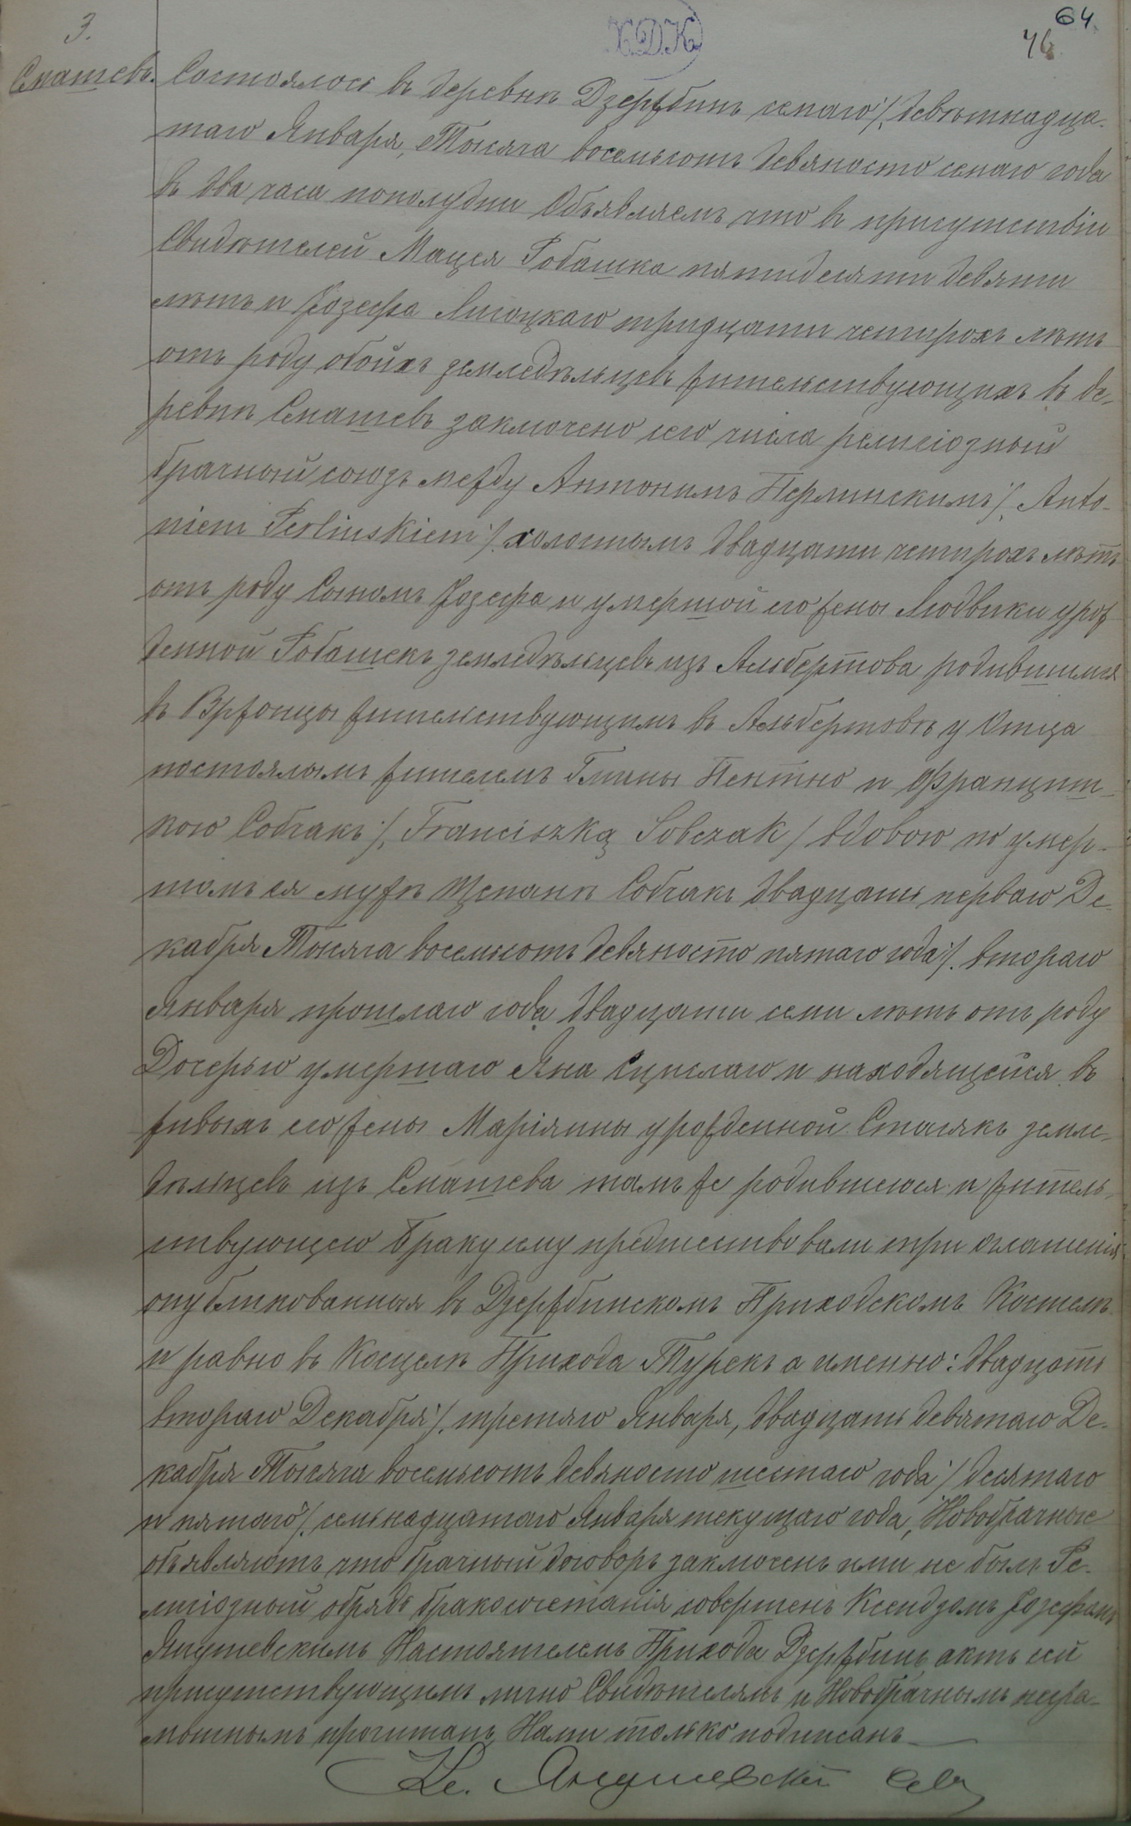 3.
64
76
Смашевъ.
Состоялось въ деревнѣ Дзержбинъ семаго /: девятнадца-
таго Января, Тысяча восемьсотъ девяносто семаго года
въ два часа пополудни Объявляемъ что въ присутствіи
Свидѣтелей Мацея Робашка пятидесяти девяти
лѣтъ и Іозефа Лисецкаго тридцати четырохъ лѣтъ
отъ роду обоихъ земледѣльцевъ жительствующихъ въ де-
ревнѣ Смашевъ заключено сего числа религіозный
брачный союзъ между Антонимъ Перлинскимъ /: Anto-
niem Perlinskiem :/ холостымъ двадцати четырохъ лѣтъ
отъ роду Сыномъ Іозефа и умершой его жены Людвики урож
денной Робашекъ земледѣльцевъ изъ Альбертова родившимся
въ жительствующимъ въ Альбертовѣ у Отца
постоялымъ жителемъ Гмины Пентно и Францишк-
кою Собчакъ /: Franciszką Sobczak / вдовою по умер-
шомъ ея мужѣ Щепанѣ Собчакъ двадцать перваго Де-
кабря Тысяча восемьсотъ девяносто пятаго года /: втораго
Января прошлаго года двадцати семи лѣтъ отъ роду
Дочерью умершаго Яна и находящейся въ
живыхъ его жены Маріянны урожденной Стасякъ земле-
дѣльцевъ изъ Смашева тамъ же родившеюся и житель-
ствующею браку сему предшествовали три оглашенія
опубликованныя въ Дзержбинскомъ Приходскомъ Костелѣ
и равно въ Косцелѣ Прихода Турекъ а именно: двадцать
втораго Декабря /: третяго Января, двадцать девятаго Де-
кабря Тысяча восемьсотъ девяносто шестаго года / десятаго
и пятаго /: семьнадцатаго Января текущаго года, Новобрачные
объявляютъ что брачный договоръ заключенъ ими не былъ Ре-
лигіозный обрядъ бракосочетанія совершенъ Ксендзомъ Іозефомъ
Янушевскимъ Настоятелемъ Прихода Дзержбинъ, актъ сей
присутствующимъ лично Свидѣтелямъ и Новобрачнымъ негра-
мотнымъ прочитанъ Нами только подписанъ
Кс. Янушевскій